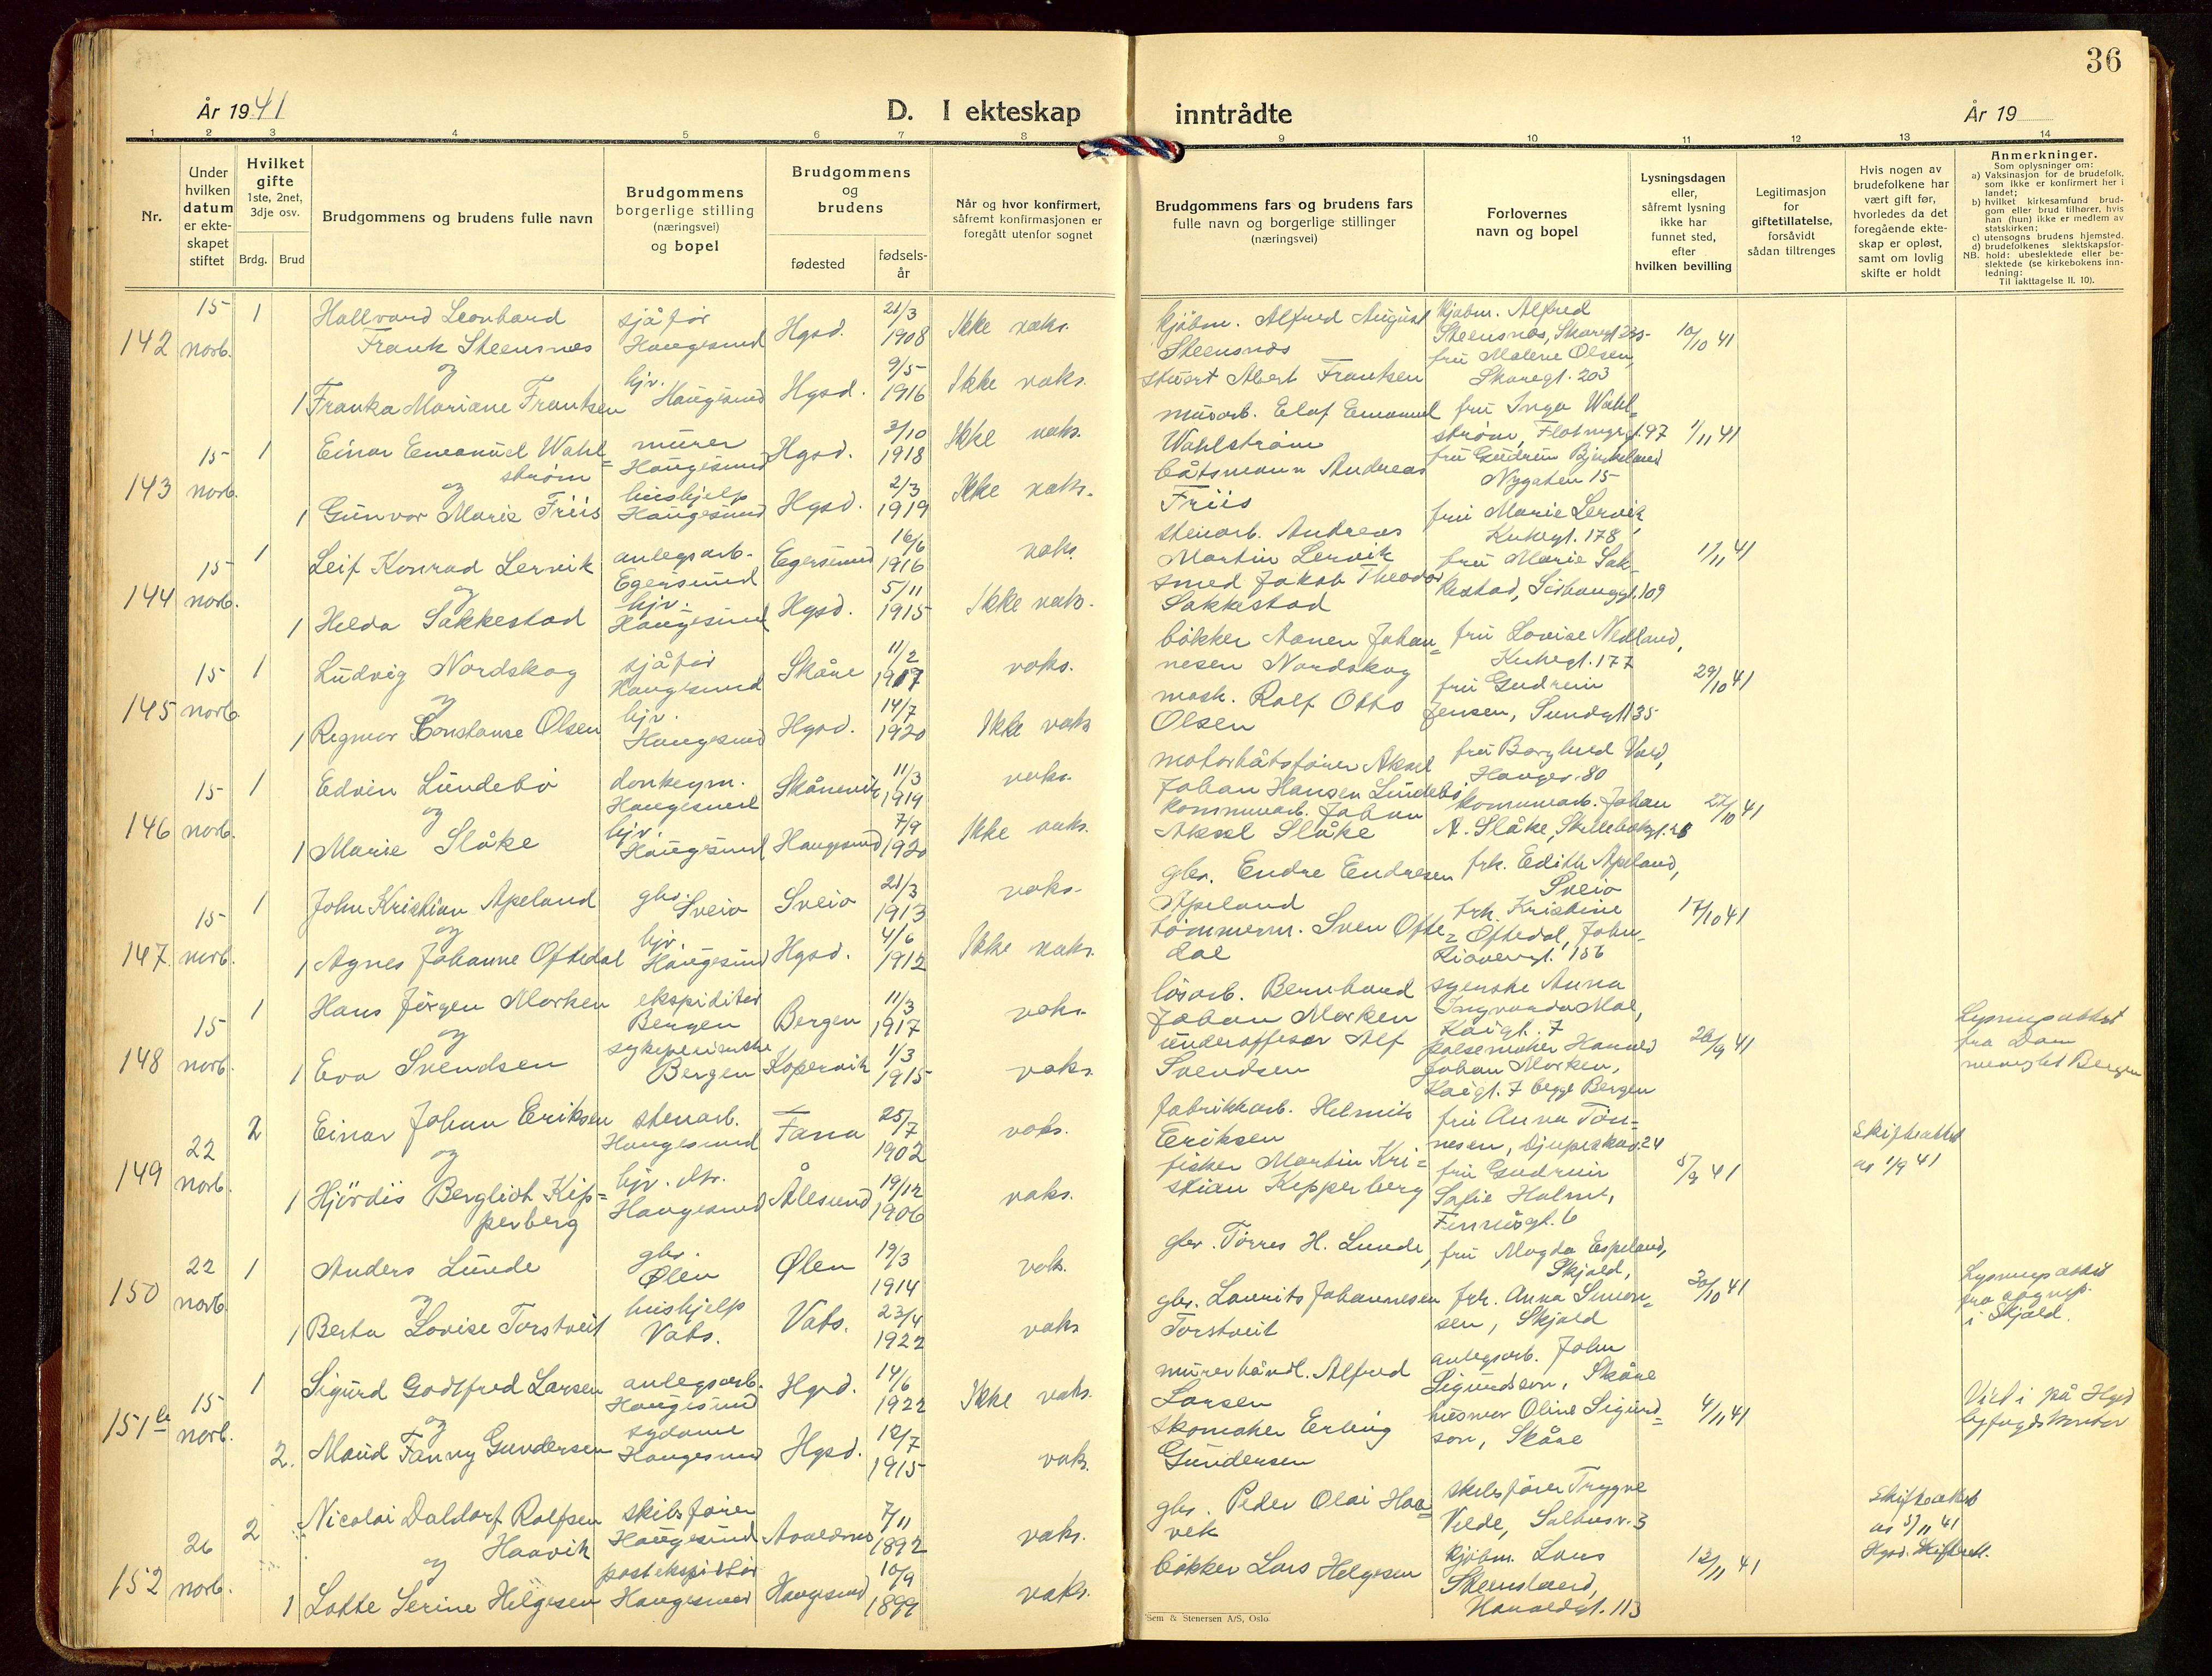 36
År 1941
D. I ekteskap inntrådte
År 19
1 2 3 4 5 6 7 8 9 10 11 12 13 14
Nr.
Under hvilken datum er ekteskapet stiftet
Hvilket gifte 1ste, 2net, 3dje osv.
Brdg. Brud
Brudgommens og brudens fulle navn
Brudgommens borgerlige stilling (næringsvei) og bopel
Brudgommens og brudens
fødested
fødselsår
Når og hvor konfirmert, såfremt konfirmasjonen er foregått utenfor sognet
Brudgommens fars og brudens fars fulle navn og borgerlige stillinger (næringsvei)
Forlovernes navn og bopel
Lysningsdagen eller, såfremt lysning ikke har funnet sted, efter hvilken bevilling
Legitimasjon for giftetillatelse, forsåvidt sådan tiltrenges
Hvis nogen av brudefolkene har vært gift før, hvorledes da det foregående ekteskap er opløst, samt om lovlig skifte er holdt
Anmerkninger.
Som oplysninger om:
a) Vaksinasjon for de brudefolk, som ikke er konfirmert her i landet;
b) hvilket kirkesamfund brudgom eller brud tilhører, hvis han (hun) ikke er medlem av statskirken;
c) utensogns brudens hjemsted.
d) brudefolkenes slektskapsforhold: ubeslektede eller beslektede (se kirkebokens innledning:
NB.
Til iakttagelse II, 10).
142 15 novb. 1 Hallvard Leonhard Frank Steensnes sjåfør Haugesund Hgsd. 21/3 1908 Ikke vaks. kjøbm. Alfred August Steensnes kjøbm. Alfred Steensnes, fru Malene Olsen, Skaregt. 203 10/10 41
og
1 Franka Mariane Frantsen hjv. Haugesund Hgsd. 9/5 1916 Ikke vaks. stuert Albert Frantsen
143 15 novb. 1 Einar Emanuel Wahlstrøm murer Haugesund Hgsd. 3/10 1918 Ikke vaks. murarb. Elof Emanuel Wahlstrøm fru Inga Wahlstrøm, Flotmyrgt. 97 1/11 41
og
1 Gunvor Marie Friis hushjelp Haugesund Hgsd. 2/3 1919 Ikke vaks. båtsmann Andreas Friis fru Gudrun Bjerkeland Nygaten 15
144 15 novb. 1 Leif Konrad Lervik anlegsarb. Egersund Egersund 16/6 1916 vaks. stenarb. Andreas Martin Lervik fru Marie Lervik, Kirkegt. 178 1/11 41
og
1 Helda Sakkestad hjv. Haugesund Hgsd. 5/11 1915 Ikke vaks. smed Jakob Theodor Sakkestad fru Marie Sakkestad, 109
145 15 novb. 1 Ludvig Nordskog sjåfør Haugesund Skåre 11/2 1917 vaks. bøkker Aanen Johannesen Nordskog fru Lovise Nedland, Kirkegt. 177 29/10 41
og
1 Regmor Constanse Olsen hjv. Haugesund Hgsd. 14/7 1920 Ikke vaks mask. Rolf Otto Olsen fru Gudrun Jensen, Sundgt. 135
146 15 novb. 1 Edvin Lundebø donkeym. Haugesund Skånevik 11/3 1919 vaks. motorbåtsfører Aksel Johan Hansen Lundebø fru Borghild Vold, Haugev. 80 27/10 41
og
1 Marie Slåke hjv. Haugesund Haugesund 7/9 1920 Ikke vaks. kommunearb. Johan Aksel Slåke kommunearb. Johan A. Slåke,
147. 15 novb. 1 John Kristian Apeland gbr. Sveio Sveio 21/3 1913 vaks. gbr. Endre Endresen Apeland frk. Edith Apeland, Sveio 17/10 41
og
1 Agnes Johanne Oftedal hjv. Haugesund Hgsd. 4/6 1912 Ikke vaks. tømmerm. Sven Oftedal frk. Kristine Oftedal, 156
148 15 novb. 1 Hans Jørgen Morken ekspiditør Bergen Bergen 11/3 1917 vaks. løsarb. Bernhard Johan Morken syerske Anna Kaigt. 7 20/9 41 Lysnings attest fra Dommenighet Bergen
og
1 Eva Svendsen sykepleierske Bergen Kopervik 1/3 1915 vaks. underoffiser Alf Svendsen pølsemaker Harald Johan Morken, Kaigt. 7 begge Bergen
149 22 novb. 2 Einar Johan Eriksen stenarb. Haugesund Fana 25/7 1902 vaks. fabrikkarb. Helmik Eriksen fru Anna Tønnesen, 24 5/9 41 Skifteattest av 1/9 41
og
1 Hjørdis Bergliot Kipperberg hjv. dtr. Haugesund Ålesund 19/12 1906 vaks. fisker Martin Kristian Kipperberg fru Gudrun Sofie Holm, 6
150 22 novb. 1 Anders Lunde gbr. Ølen Ølen 19/3 1914 vak. gbr. Torres H. Lunde, fru Magda Espeland, Skjold, 30/10 41 Lysnings attest fra sognep. i Skjold.
og
1 Berta Lovise Torstveit hushjelp Vats. Vats. 23/4 1922 vaks gbr. Laurits Johannesen Torstveit frk. Anna Simonsen, Skjold
151 15 novb. 1 Sigurd Godtfred Larsen anlegsarb. Haugesund Hgsd. 14/6 1922 Ikke vaks. murerhåndl. Alfred Larsen anlegsarb. John Sigurdson, Skåre 4/11 41 Viet i på Hgsd byfogdkontor
og
2. Maud Fanny Gundersen sydame Haugesund Hgsd. 12/7 1915 vaks. skomaker Erling Gundersen husmor Oline Sigurdson, Skåre
152 26 novb. 2 Nicolai Daldorf Rolfsen Haavik skibsfører Haugesund Avaldsnes 7/11 1892 vaks. gbr. Peder Olai Haavik skibsfører Trygve Velde, Salhusv. 3 12/11 41 Skifteattest av 5/11 41 Hgsd. Skifterett.
og
1 Lotte Serine Helgesen postekspeditør Haugesund Haugesund 10/9 1899 vaks. bøkker Lars Helgesen kjøbm. Lars Haraldgt. 113
Sem & Stenersen A/S, Oslo